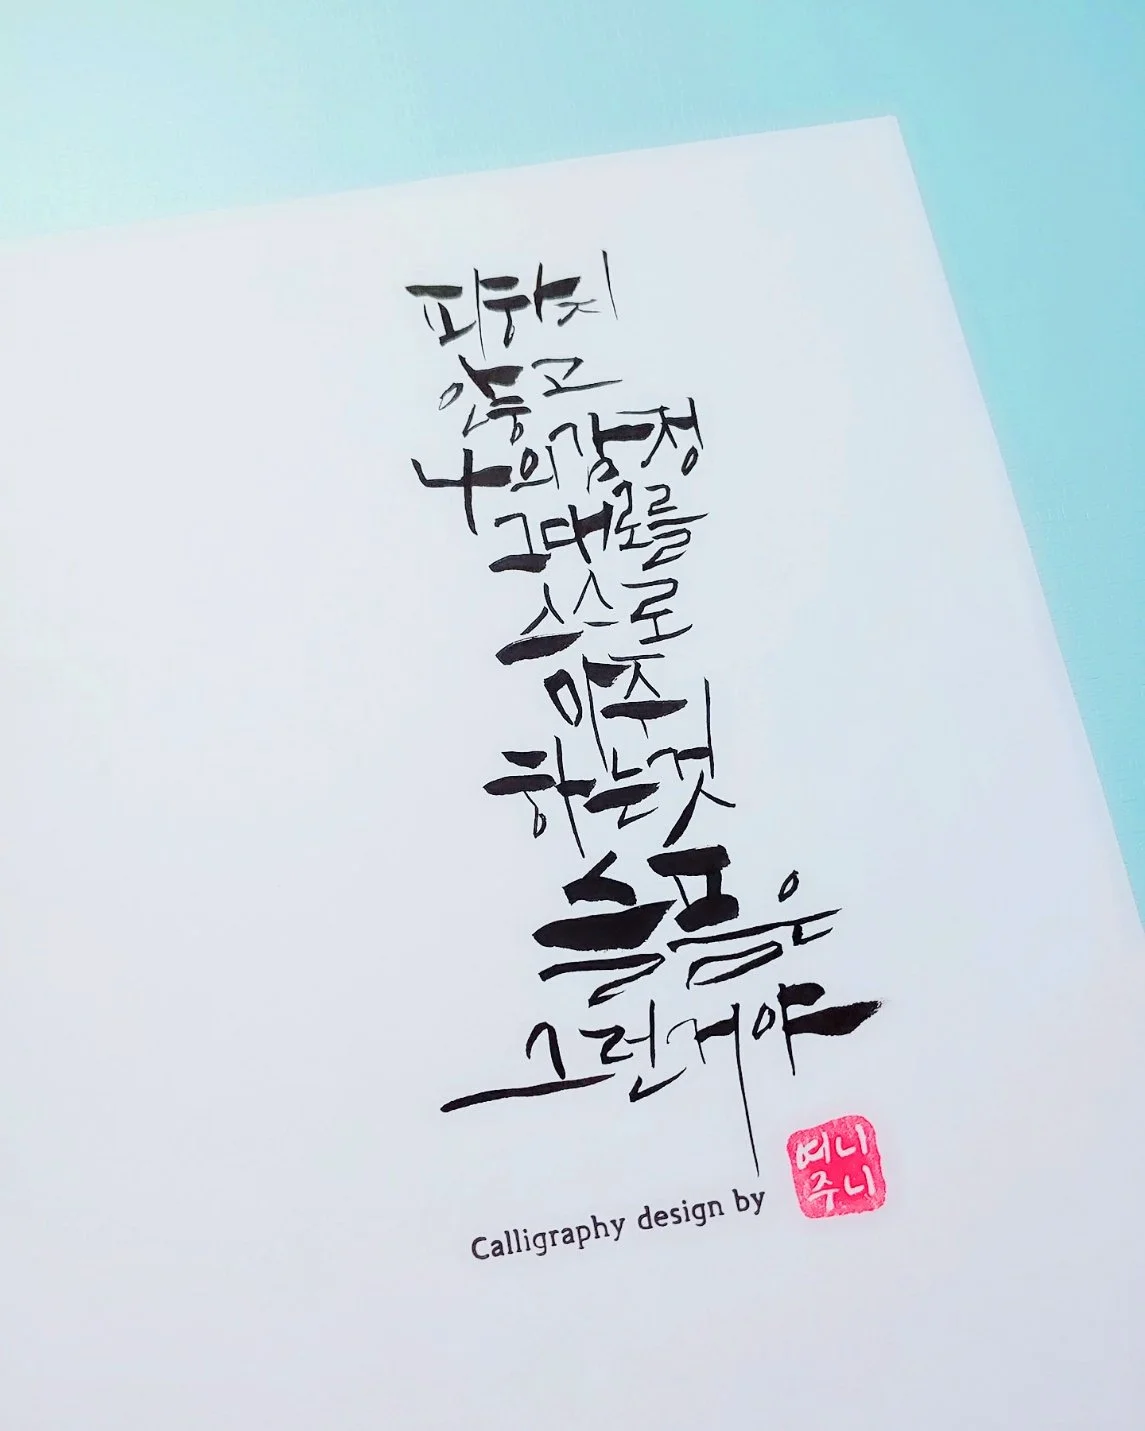 피하지
않고
나의 감정
그대로를
스스로
마주
하는 것
슬픔은
그런거야
Calligraphy design by
여니
주니